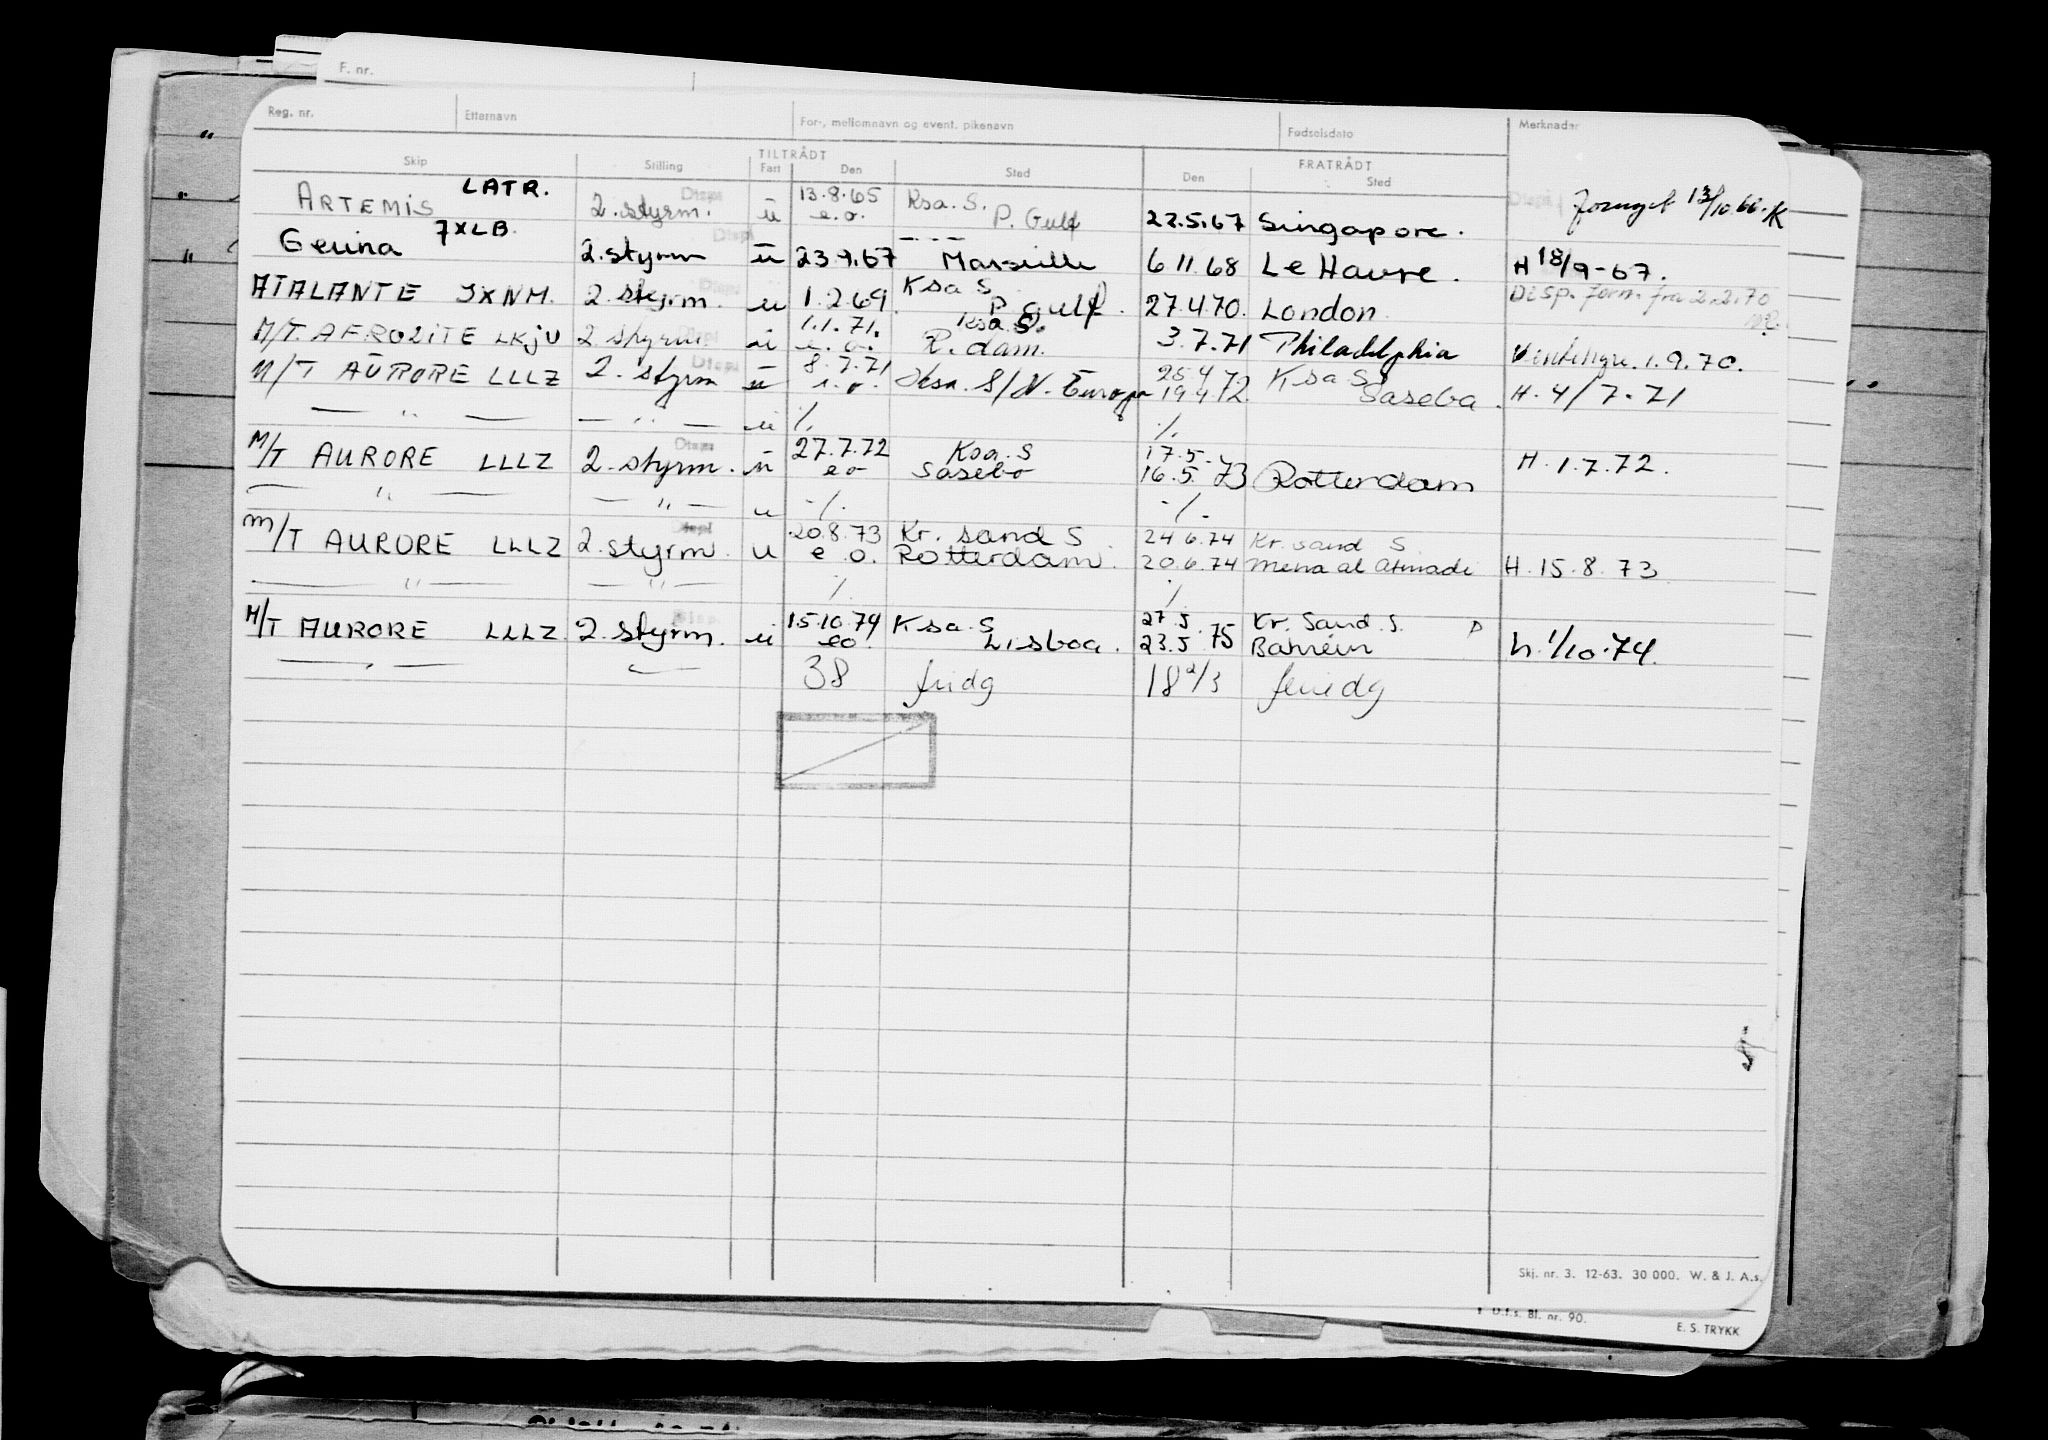 F. nr.
Reg. nr. Etternavn For-, mellomnavn og event. pikenavn Fødselsdato Merknader
TILTRÅDT FRATRÅDT
Skip Stilling Fart Den Sted Den Sted
ARTEMIS LATR. 2. styrm. Disp. u 13.8.65 e.o. Ksa. S. P. Gulf 22.5.67 Singapore. Fornyet 13/10.66. K
Gerina 7XLB. 2. styrm Disp. u 23.9.67 Marseille 6 11.68 Le Havre. H 18/9-67.
ATALANTE JXNM. 2. styrm. Disp. u 1.2.69. Ksa S P. Gulf. 27.4.70. London. Disp. form. fra 2.2.70
M/T. AFRODITE LKJU 2 styrm. Disp. u 1.1.71. e.o. Ksa. S. R.dam. 3.7.71 Philadelphia 1.9.70.
M/T AURORE LLLZ 2. styrm Disp. u 8.7.71 e.o. Ksa. S/N. Europa 25 4 19 4 72. Ksa S Sasebo. H. 4/7.71
— " — — " — u ·/. ·/.
M/T AURORE LLLZ 2. styrm. Disp. u 27.7.72 eo Ksa. S Sasebo 17.5. 16.5. 73 Rotterdam H. 1.7.72.
— " — — " — u ·/. -/-
M/T AURORE LLLZ 2. styrm. Disp. u 20.8.73 e o. Kr. sand S. Rotterdam. 24.6.74 20.6.74 Kr. sand S. Mena al Ahmadi H. 15.8.73
— " — — " — ·/. ·/.
M/T AURORE LLLZ. 2. styrm. Disp. u 15.10.74 eo. Ksa. S Lisboa. 27.5 23.5 .75 Kr. Sand. S. Bahrein P h. 1/10.74.
— " — — " —
38 fridg 18 2/3 feriedg
Skj. nr. 3. 12-63. 30 000. W. & J. A.s.
D.f.s. Bl. nr. 90. E. S. TRYKK